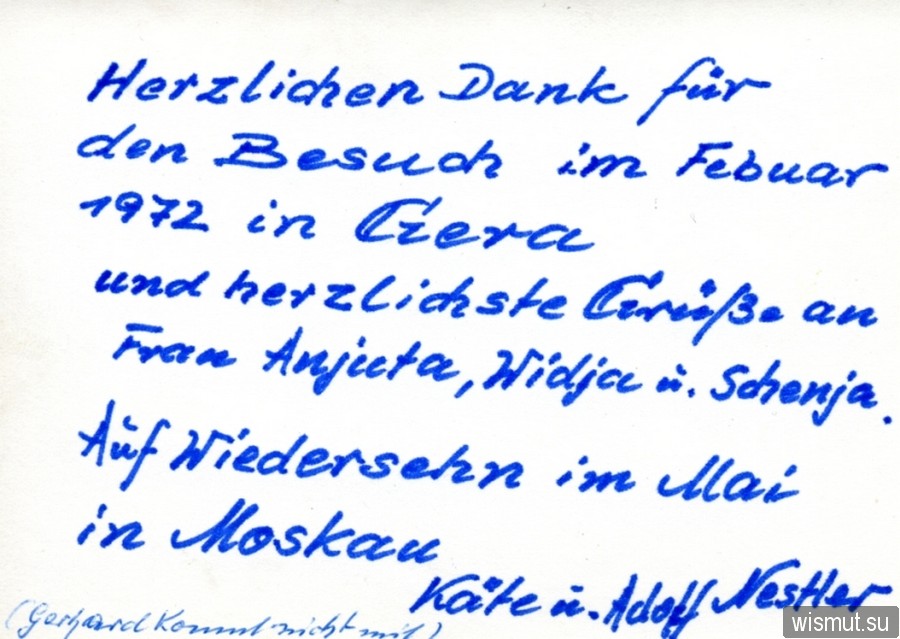 Herzlichen Dank für
den Besuch im Febuar
1972 in Gera
und herzlichste Grüße an
Frau Anjuta, Widja u. Schenja.
Auf Wiedersehn im Mai
in Moskau
Käte u. Adolf Nestler
(Gerhard kommt nicht mit)
wismut.su